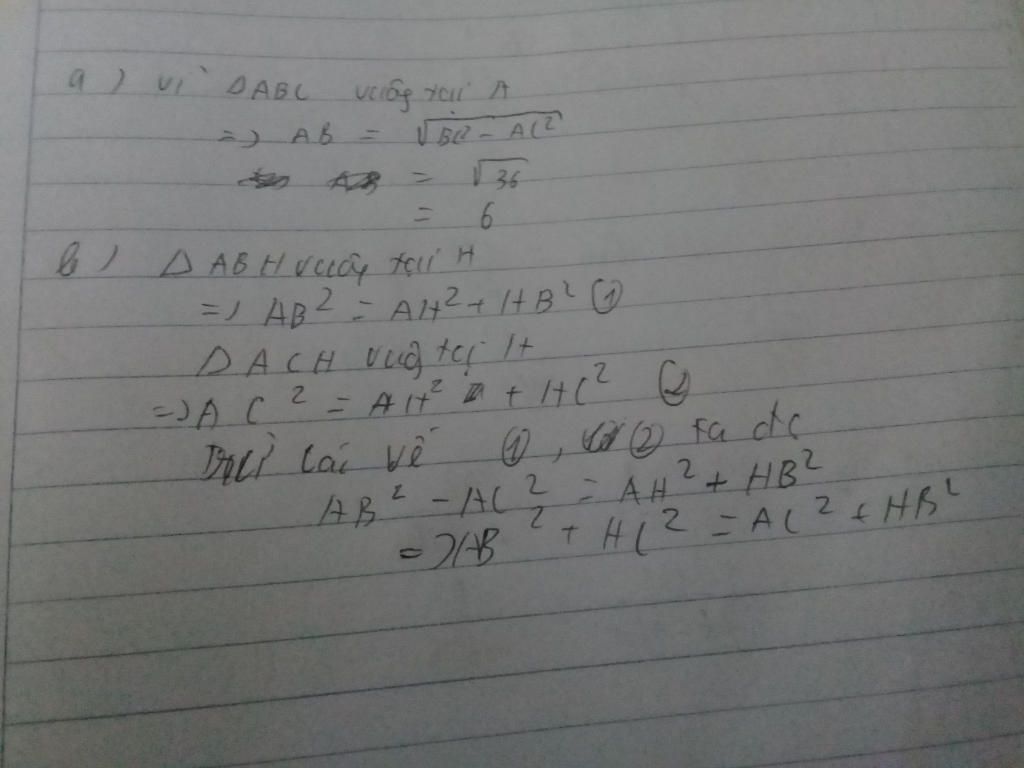 a) vì ΔABC vuông tại A
=> AB = √BC² - AC²
= √36
= 6
b) Δ ABH vuông tại H
=> AB² = AH² + HB² ①
Δ ACH vuông tại H
=> AC² = AH² + HC² ②
các vế ①, với ② ta đc
AB² - AC² = AH² + HB²
=> AB² + HC² = AC² + HB²